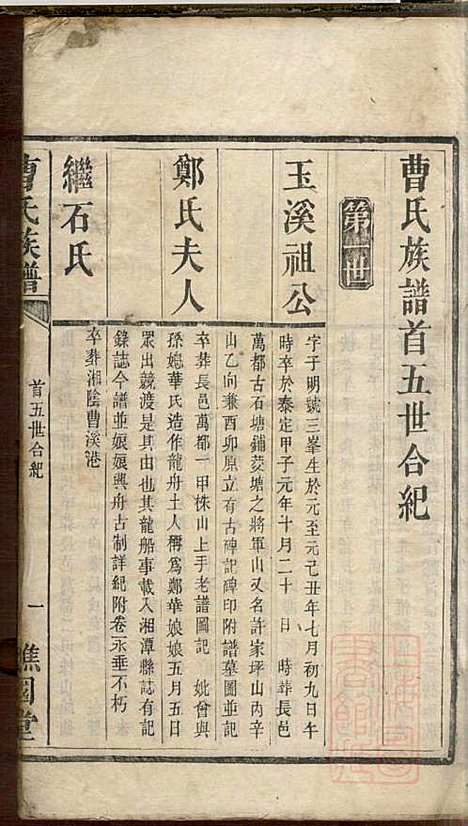 曹氏族譜首五世合紀
第一世
玉溪祖公
字子明號三峯生於元至元己丑年七月初九日午
時卒於泰定甲子元年十月二十 日 時葬長邑
萬都古石塘鋪菱塘之將軍山又名許家坪山丙辛
山乙向兼酉卯原立有古碑記碑印附譜墓圖並記
鄭氏夫人
卒葬長邑萬都一甲株山上手老譜圖記 妣曾與
孫媳華氏造作龍舟土人稱爲鄭華娘娘五月五日
眾出競渡是其由也其龍船事載入湘潭縣誌有記
錄誌今譜並娘娘與舟古制詳紀附卷一永垂不朽
繼石氏
卒葬湘陰曹溪港
曹氏族譜
首五世合紀
一
譙國堂